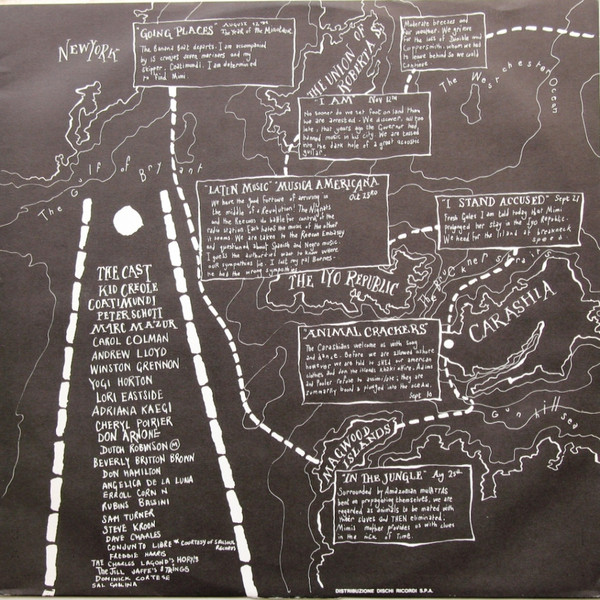 NEW YORK
"GOING PLACES" AUGUST 12TH
The Year of the Mixture
The Banana Boat departs. I am accompanied
by 15 cronies seven marines and my
skipper Coatimundi. I am determined
to find Mimi
THE UNION OF
ROBERTA S.
Moderate breezes and
fair weather. We grieve
for the loss of
Coppersmith whom we had
to leave behind So we could
Continue
The Westchester Ocean
"I AM" Nov
No sooner do we set foot on land than
we are arrested. We discover, all too
late, that years ago the Governor had
banned music in his city. We are tossed
into the dark hole of a great acoustic
guitar.
The Gulf of Bryant
"LATIN MUSIC" "MUSICA AMERICANA"
Oct 23RD
We have the good fortune of arriving in
the middle of a Revolution! The Nignats
and the Reecons do battle for control of the
radio station. Each hates the music of the other
it seems. We are taken to the Reecon Embassy
and questioned about Spanish and Negro music.
I guess the authorities want to know where
our sympathies lie. I lost my pal Barnes-
he had the wrong sympathies
"I STAND ACCUSED" Sept 21
Fresh Gales I am told today that Mimi
prolonged her stay on the Iyo Republic.
We head for the island at breakneck
speed
THE IYO REPUBLIC
The Bruckner Straits
CARASHIA
"ANIMAL CRACKERS"
The Carashians welcome us with song
and dance. Before we are allowed
however we are told to shed our american
clothes and don the islands khaki attire. Adams
and Fowler refuse to assimilate; they are
summarily bound & plunged into the ocean.
Sept 10
Gun hill sea
MACWOOD
ISLANDS
"IN THE JUNGLE" Aug 25th
Surrounded by Amazonian mulattas
bent on propagating themselves, we are
regarded as animals to be mated with
their slaves and THEN eliminated.
Mimi's mother provides us with slaves
in the nick of time.
THE CAST
KID CREOLE
COATIMUNDI
PETER SCHOTT
MARC MAZUR
CAROL COLMAN
ANDREW LLOYD
WINSTON GRENNON
YOGI HORTON
LORI EASTSIDE
ADRIANA KAEGI
CHERYL POIRIER
DON ARMONE
DUTCH ROBINSON M
BEVERLY BRITTON BROWN
DON HAMILTON
ANGELICA DE LA LUNA
ERROLL CORN N
RUBENS BASSINI
SAM TURNER
STEVE KROON
DAVE CHARLES
CONJUNTO LIBRE * COURTESY OF SALSOUL
RECORDS
FREDDIE HARRIS
THE CHARLES LAGOND'S HORNS
THE JILL JAFFE'S STRINGS
DOMINICK CORTESE
SAL GUGLINA
DISTRIBUZIONE DISCHI RICORDI S.P.A.